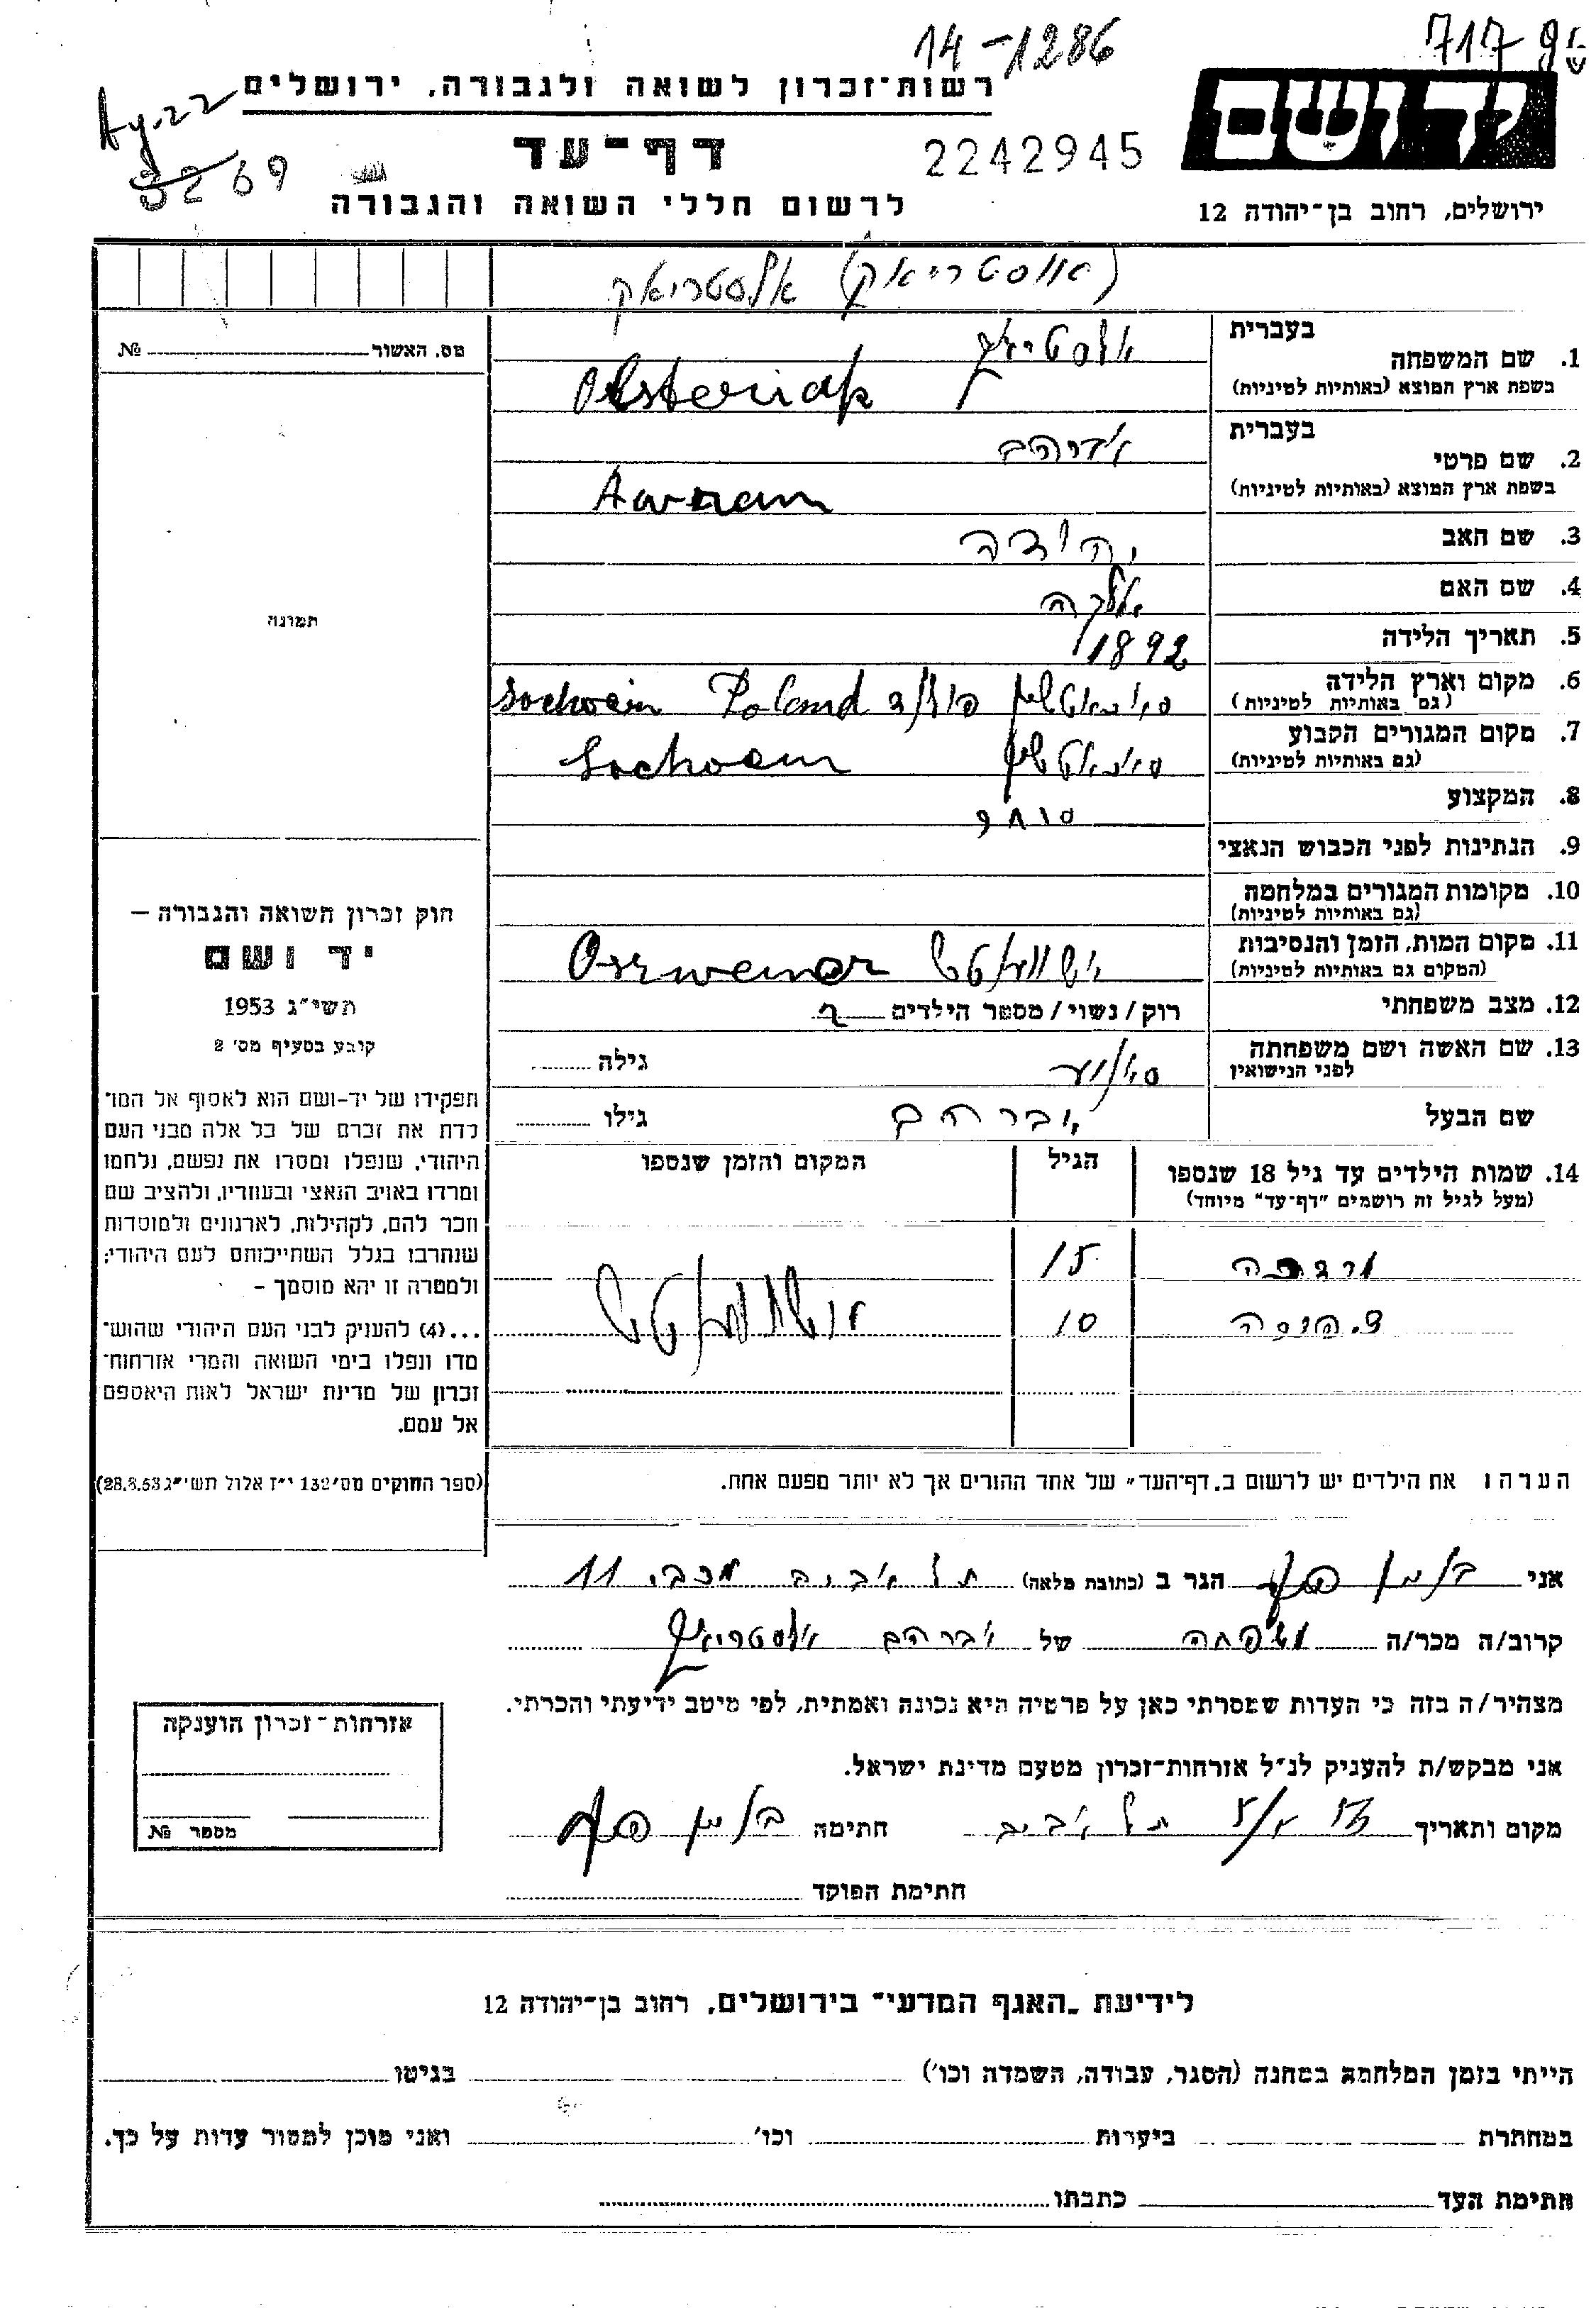 14-1286
717 פ ש
רשות־זכרון לשואה ולגבורה, ירושלים
Ay.22
דף־עד
2242945
יד ושם
69
לרשום חללי השואה והגבורה
ירושלים, רחוב בן־יהודה 12
(אוסטריאק) אלסטריאק
מס. האשור № 
בעברית
1. שם המשפחה
בשפת ארץ המוצא (באותיות לטיניות) Olsteriak
בעברית אברהם
2. שם פרטי
בשפת ארץ המוצא (באותיות לטיניות)
3. שם האב יהודה
4. שם האם
5. תאריך הלידה 1892
תמונה
6. מקום וארץ הלידה
(גם באותיות לטיניות) פולין Poland
7. מקום המגורים הקבוע
(גם באותיות לטיניות)
8. המקצוע סוחר
9. הנתינות לפני הכבוש הנאצי
10. מקומות המגורים במלחמה
(גם באותיות לטיניות)
11. מקום המות, הזמן והנסיבות
(המקום גם באותיות לטיניות)
12. מצב משפחתי רוק/נשוי/מספר הילדים 2
13. שם האשה ושם משפחתה
לפני הנישואין גילה
שם הבעל אברהם גילו
14. שמות הילדים עד גיל 18 שנספו הגיל המקום והזמן שנספו
(מעל לגיל זה רושמים "דף־עד" מיוחד)
15
10
הערה: את הילדים יש לרשום ב"דף־העד" של אחד ההורים אך לא יותר מפעם אחת.
חוק זכרון השואה והגבורה –
יד ושם
תשי"ג 1953
קובע בסעיף מס' 2
תפקידו של יד-ושם הוא לאסוף אל המו־
לדת את זכרם של כל אלה מבני העם
היהודי, שנפלו ומסרו את נפשם, נלחמו
ומרדו באויב הנאצי ובעוזריו, ולהציב שם
וזכר להם, לקהילות, לארגונים ולמוסדות
שנחרבו בגלל השתייכותם לעם היהודי;
ולמטרה זו יהא מוסמך –
...(4) להעניק לבני העם היהודי שהוש־
מדו ונפלו בימי השואה והמרי אזרחות־
זכרון של מדינת ישראל לאות היאספם
אל עמם.
(ספר החוקים מס' 132 י"ז אלול תשי"ג 28.8.53)
אני הגר ב (כתובת מלאה) תל אביב מכבי 11
קרוב/ה מכר/ה משפחה של אברהם אלסטריאק
מצהיר/ה בזה כי העדות שמסרתי כאן על פרטיה היא נכונה ואמתית, לפי מיטב ידיעתי והכרתי.
אני מבקש/ת להעניק לנ"ל אזרחות־זכרון מטעם מדינת ישראל.
מקום ותאריך תל אביב חתימה
חתימת הפוקד
אזרחות־זכרון הוענקה
מספר №
לידיעת "האגף המדעי" בירושלים, רחוב בן־יהודה 12
הייתי בזמן המלחמה במחנה (הסגר, עבודה, השמדה וכו') בגיטו
במחתרת ביערות וכו' ואני מוכן למסור עדות על כך.
חתימת העד כתבתו